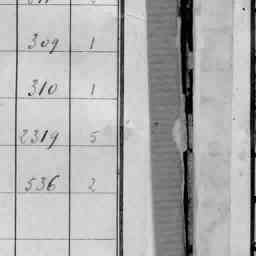 309 1
310 1
2319 5
536 2